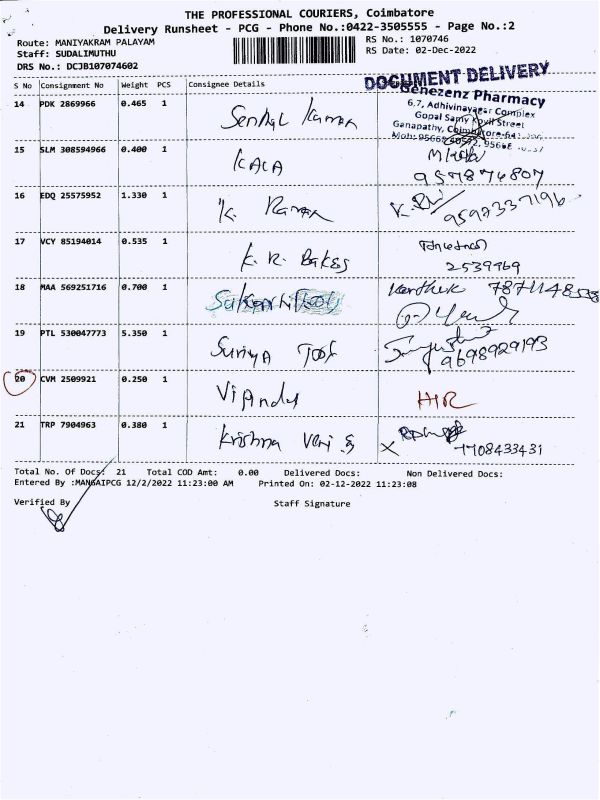 THE PROFESSIONAL COURIERS, Coimbatore
Delivery Runsheet - PCG - Phone No.:0422-3505555 - Page No.:2
Route: MANIYAKRAM PALAYAM
RS No.: 1070746
Staff: SUDALIMUTHU
RS Date: 02-Dec-2022
DRS No.: DCJB107074602
DOCUMENT DELIVERY
S No Consignment No Weight PCS Consignee Details
Genezenz Pharmacy
6,7, Adhivinayagar Complex
Gopal Samy Kovil Street
Ganapathy, Coimbatore
14 PDK 2869966 0.465 1 Senthil Kumar
15 SLM 308594966 0.400 1 KALA
9578746807
16 EDQ 25575952 1.330 1 K. Raman
9592337196
17 VCY 85194014 0.535 1 K. R. Bakes
2539769
18 MAA 569251716 0.700 1 Karthik
19 PTL 530047773 5.350 1 Suriya Tools
9698929193
20 CVM 2509921 0.250 1
21 TRP 7904963 0.380 1 Krishna Veni S
7708433431
Total No. Of Docs: 21 Total COD Amt: 0.00 Delivered Docs: Non Delivered Docs:
Entered By :MANGAIPCG 12/2/2022 11:23:00 AM Printed On: 02-12-2022 11:23:08
Verified By Staff Signature